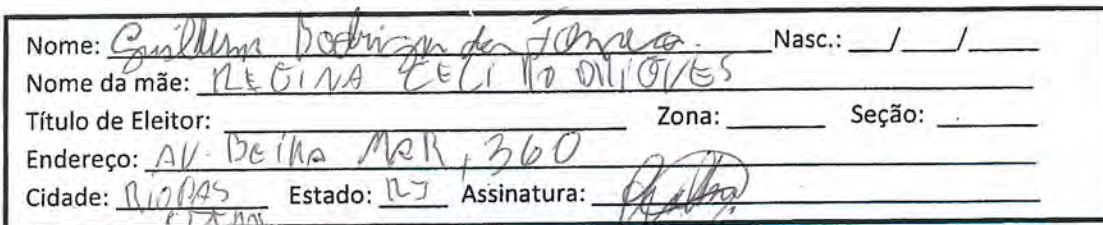 Nome: Guilherme Rodrigues da Fonseca Nasc.: __/__/____
Nome da mãe: REGINA CELI RODRIGUES
Título de Eleitor: ____ Zona: ____ Seção: ____
Endereço: AV. BEIRA MAR, 360
Cidade: RIO DAS Estado: RJ Assinatura:
OSTRAS